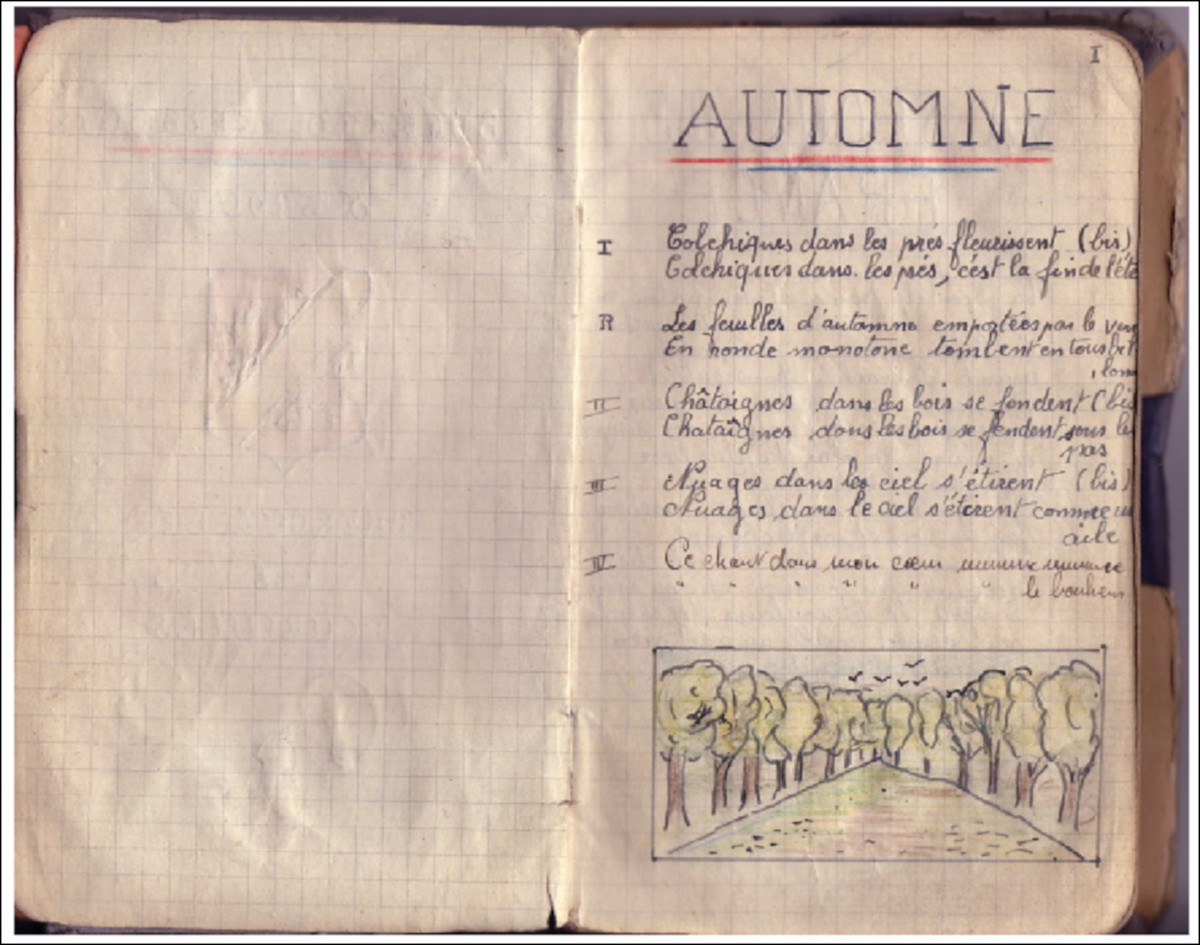 I
AUTOMNE
I Colchiques dans les prés fleurissent (bis)
Colchiques dans les prés, c'est la fin de l'été
R Les feuilles d'automne emportées par le ven
En ronde monotone tombent en tour
II Châtaignes dans les bois se fendent (bis
Chataîgnes dans les bois se fendent sous le
pas
III Nuages dans le ciel s'étirent (bis)
Nuages dans le ciel s'étirent comme u
aile
IV Ce chant dans mon cœur murmure murmure
" " " " " " le bonheur